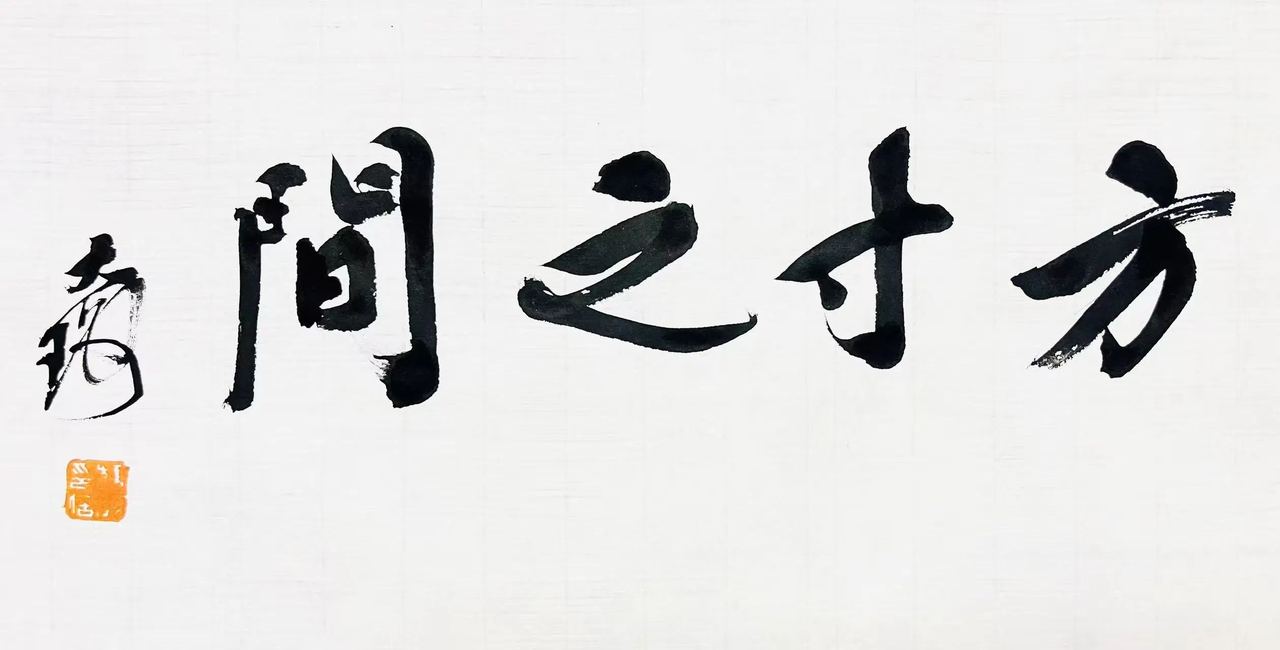 方寸之間